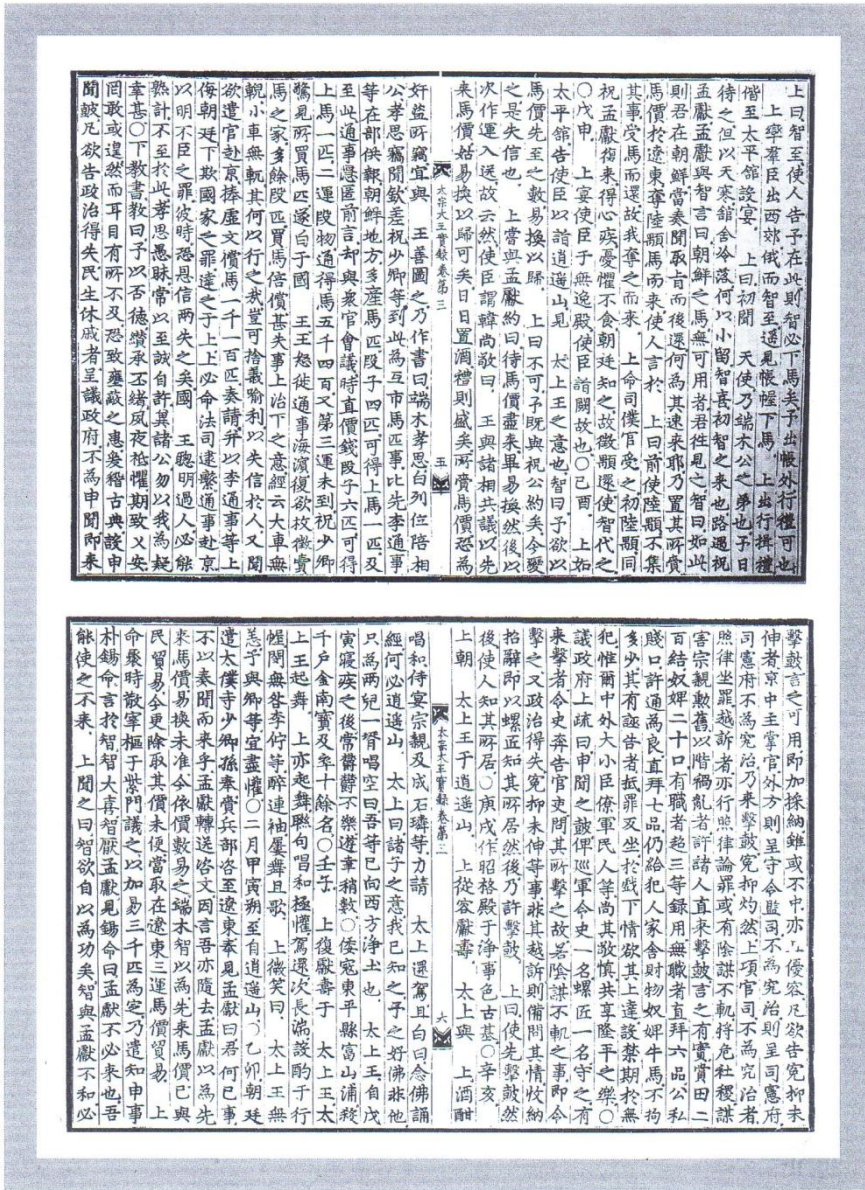 上曰智至使人告子在此則智必下馬矣予出帳外行禮可也
上率羣臣出西郊俄而智至遥見帳幄下馬 上出行揖禮
偕至太平館設宴 上曰初聞 天使乃端木公之弟也予日
待之但以天寒館舍冷落何以小留智喜初智之来也路遇祝
孟獻孟獻與智言曰朝鮮之馬無可用者君徃見之智曰如此
則君在朝鮮當奏聞取旨而後還何為其速来耶乃置其所賫
馬價於遼東率陸顒馬而来使人言於 上曰前使陸顒不集
其事受馬而還故我率之而来 上命司僕官受之初陸顒同
祝孟獻復来得心疾憂懼不食朝廷知之故徵顒還使智代之
○戊申 上宴使臣于無逸殿使臣詣闕故也○己酉 上如
太平館告使臣以詣逍遥山見 太上王之意也智曰予欲以
馬價先至之數易換以歸 上曰不可予既與祝公約矣今更
之是失信也 上嘗與孟獻約曰待馬價盡来畢易換然後以
次作運入送故云然使臣謂韓尚敬曰 王與諸相共議以先
来馬價姑易換以歸可矣日日置酒禮則盛矣所賫馬價恐為
太宗大王實録卷第三 五
奸盗所竊宜與 王善圖之乃作書曰端木孝思白列位陪相
公孝思竊聞欽差祝少卿等到此為互市馬匹事比先李通事
等在部供報朝鮮地方多産馬匹叚子四匹可得上馬一匹及
至此通事愚匿前言却與衆官會議時直價錢叚子六匹可得
上馬一匹二運叚物通得馬五千四百又第三運未到祝少卿
驚見所買馬匹遂白于國 王王怒徙通事海濱復欲枚徵賣
馬之家多餘叚匹買馬倍償甚失事上治下之意經云大車無
輗小車無軏其何以行之哉豈可捨義喻利以失信於人又聞
欲遣官赴京捧虚文償馬一千一百匹奏請并以李通事等上
侮朝廷下欺國家之罪達之于上上必命法司逮繫通事赴京
以明不臣之罪彼時恐恩信兩失之矣國 王聰明過人必能
熟計不至於此孝思愚昧常以至誠自許冀諸公勿以我為疑
幸甚○下教書教曰予以否德纉承丕緒夙夜祗懼期致乂安
罔敢或遑然而耳目有所不及恐致壅蔽之患爰稽古典設申
聞皷凡欲告政治得失民生休戚者呈議政府不為申聞即来
擊皷言之可用即加採納雖或不中亦且優容凡欲告冤抑未
伸者京中主掌官外方則呈守令監司不為究治則呈司憲府
司憲府不為究治乃来擊皷冤抑灼然上項官司不為究治者
照律坐罪越訴者亦行照律論罪或有陰謀不軌将危社稷謀
害宗親勲舊以階禍亂者許諸人直来擊皷言之有實賞田二
百結奴婢二十口有職者超三等録用無職者直拜六品公私
賤口許通為良直拜七品仍給犯人家舍財物奴婢牛馬不拘
多少其有誣告者抵罪反坐於戱下情欲其上達設禁期於無
犯惟爾中外大小臣僚軍民人等尚其敬慎共享隆平之樂○
議政府上疏曰申聞之皷俾巡軍令史一名螺匠一名守之有
来擊者令史奔告官吏問其所擊之故若陰謀不軌之事即令
擊之又政治得失冤抑未伸等事非其越訴則備問其情收納
招辭即以螺匠知其所居然後乃許擊皷 上曰使先擊皷然
後使人知其所居○庚戌作昭格殿于淨事色古基○辛亥
上朝 太上王于逍遥山 上從容獻壽 太上與 上酒酣
太宗大王實録卷第三 六
唱和侍宴宗親及成石璘等力請 太上還駕且白曰念佛誦
經何必逍遥山 太上曰諸子之意我已知之予之好佛非他
只為兩兒一壻唱空曰吾等已向西方淨土也 太上王自戊
寅寢疾之後常欝欝不樂遊幸稍數○倭寇東平縣富山浦殺
千户金南寶及卒十餘名○壬子 上復獻壽于 太上王太
上王起舞 上亦起舞聯句唱和極懽駕還次長湍設酌于行
幄閔無咎李佇等醉連袖屢舞且歌 上微笑曰 太上王無
恙予與卿等宜盡懽○二月甲寅朔至自逍遥山○乙卯朝廷
遣太僕寺少卿孫奉賫兵部咨至遼東奉見孟獻曰君何已事
不以奏聞而来乎孟獻轉送咨文因言吾亦隨去孟獻以為先
来馬價易換未准今依價數易之端木智以為先来馬價已與
民貿易今更除取其價未便當取在遼東三運馬價貿易 上
命暴時散宰樞于紫門議之以加易三千匹為定乃遣知申事
朴錫命言於智智大喜智厭孟獻見錫命曰孟獻不必来也吾
能使之不来 上聞之曰智欲自以為功矣智與孟獻不和必